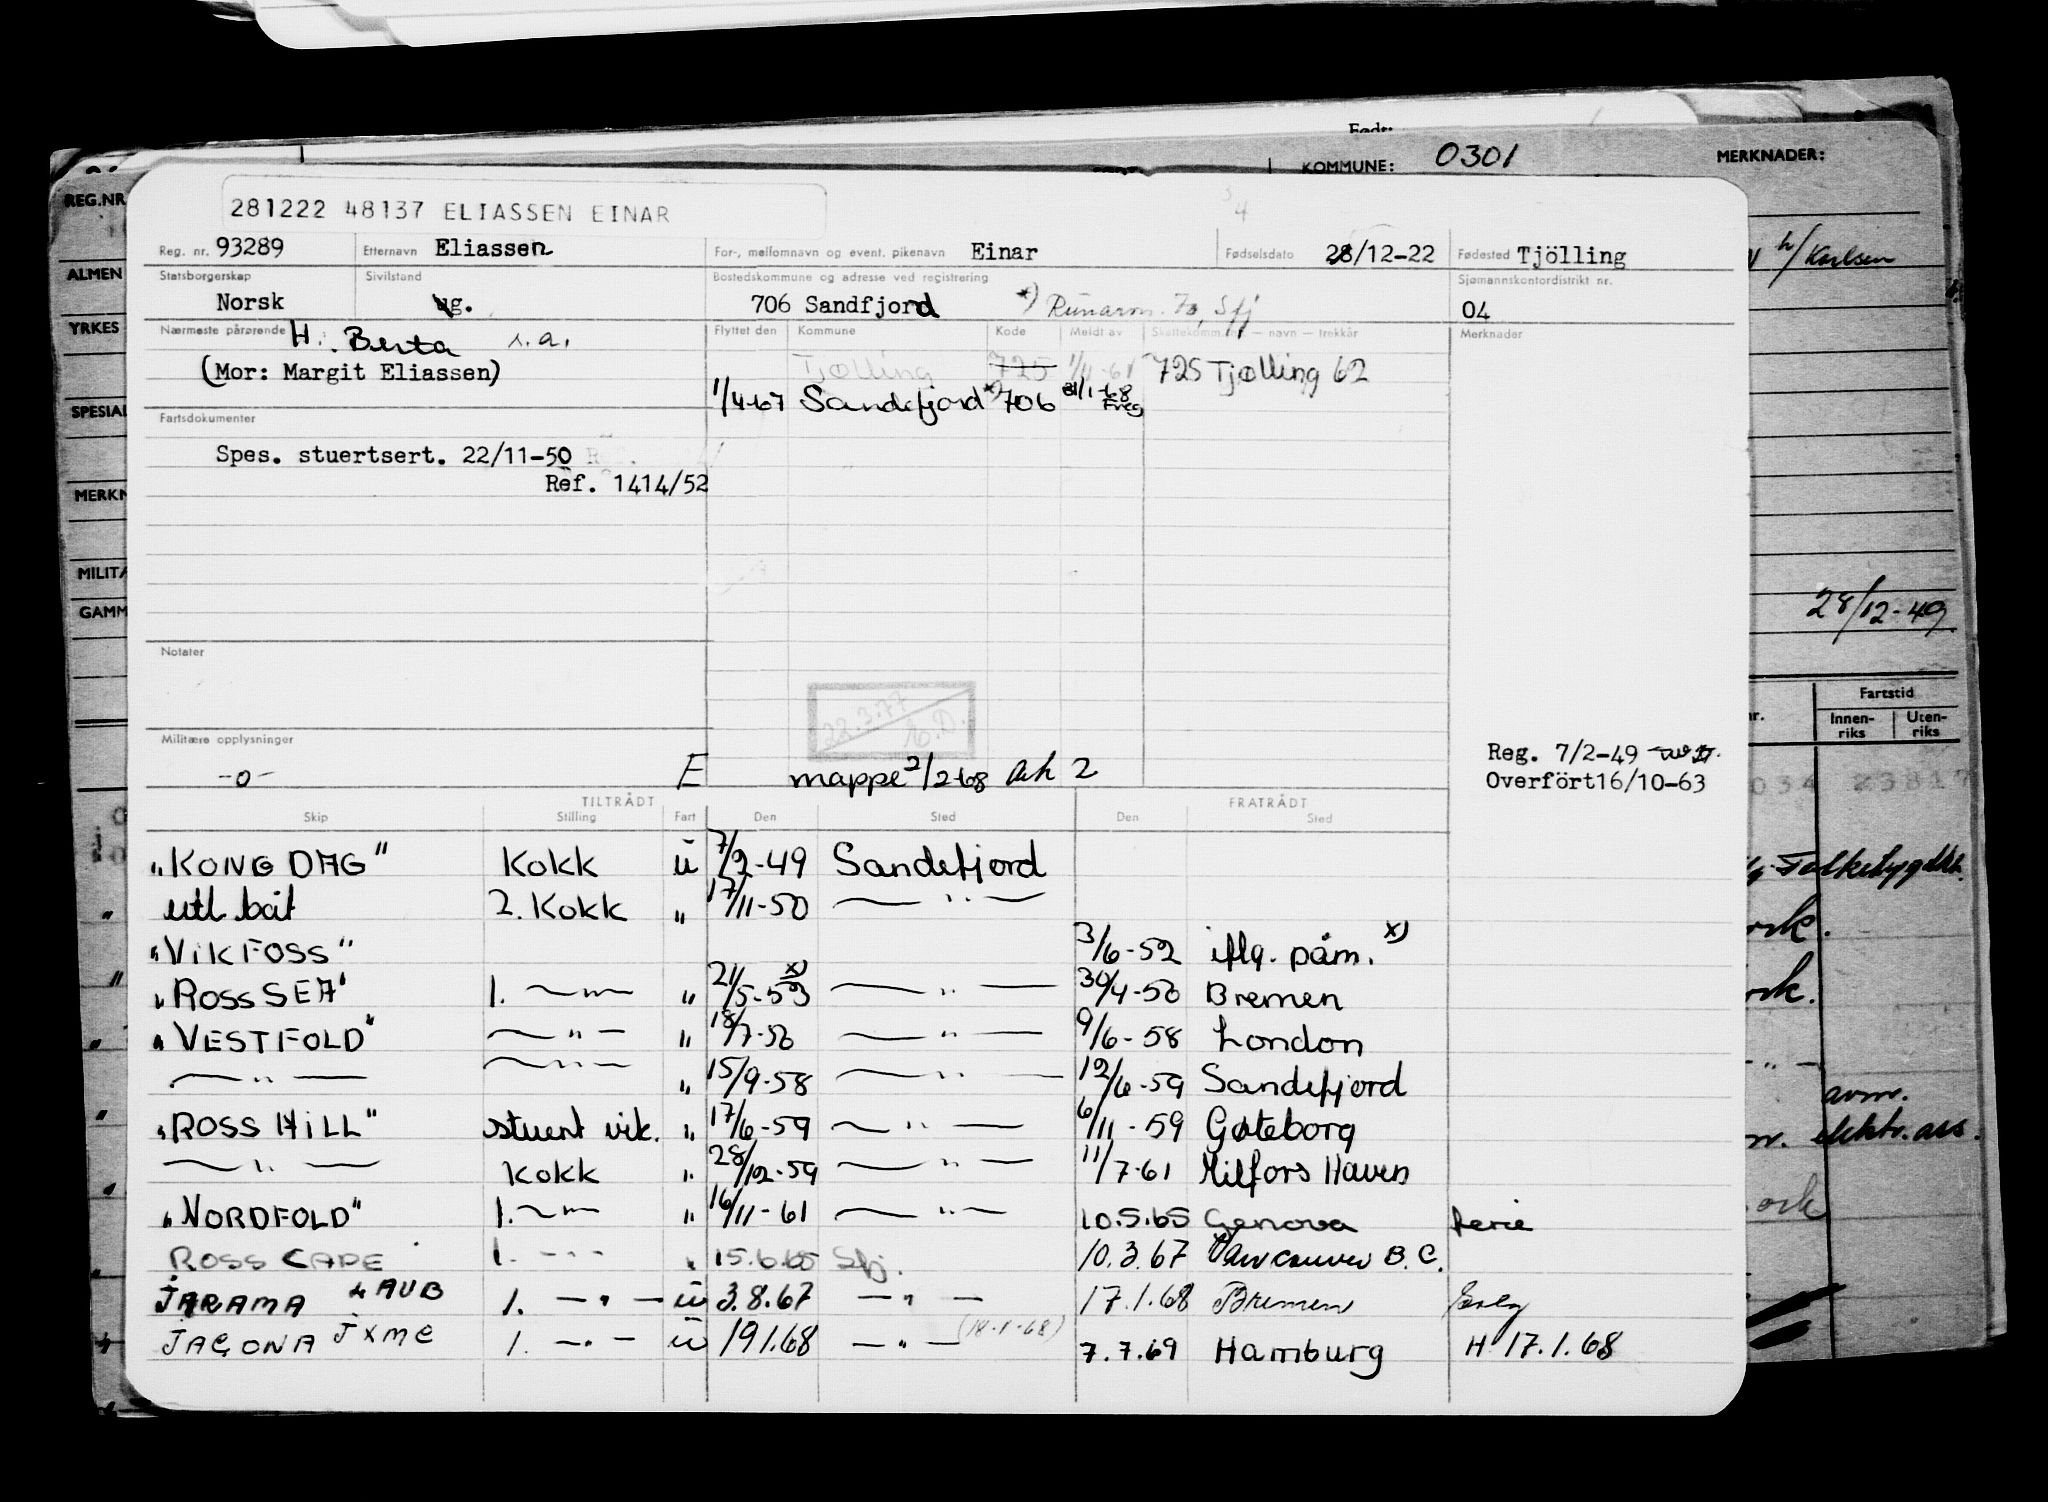 Født:
KOMMUNE: 0301 MERKNADER:
REG.NR
281222 48137 ELIASSEN EINAR
Reg. nr. 93289 Etternavn Eliassen For-, mellomnavn og event. pikenavn Einar Fødselsdato 28/12-22 Fødested Tjölling
h/Karlsen
ALMEN
Statsborgerskap Sivilstand Bostedskommune og adresse ved registrering Sjømannskontordistrikt nr.
Norsk ug. 706 Sandfjord *) Runarv. 70, Sfj 04
YRKES
Nærmeste pårørende H: Berta s.a. Flyttet den Kommune Kode Meldt av Skattekomm. nr. — navn — trekkår Merknader
(Mor: Margit Eliassen) Tjølling 725 1/4-61 725 Tjølling 62
1/4-67 Sandefjord *) 706 31/1-68 Freg
SPESIAL
Fartsdokumenter
Spes. stuertsert. 22/11-50
Ref. 1414/52
MERKN
MILITÆ
GAMM
28/12-49
Notater
22.3.77
Fartstid
nr. Innen-riks Uten-riks
Militære opplysninger
-o- E mappe 2/2-68 Ark 2
Reg. 7/2-49
Overfört16/10-63
TILTRÅDT FRATRÅDT
Skip Stilling Fart Den Sted Den Sted
"KONG DAG" Kokk u 7/2-49 Sandefjord
utl. båt 2. Kokk " 17/11-50 — " —
"VIKFOSS" 3/6-52 iflg. påm. x)
"ROSS SEA" 1. — " — " 21/5-53 x) — " — 30/4-56 Bremen
"VESTFOLD" — " — " 18/7-56 — " — 9/6-58 London
— " — — " — " 15/9-58 — " — 12/6-59 Sandefjord
"ROSS HILL" stuert vik. " 17/6-59 — " — 6/11-59 Gøteborg
— " — Kokk " 28/12-59 — " — 11/7-61 Milfors Haven
"NORDFOLD" 1. — " — " 16/11-61 — " — 10.5.65 Genova ferie
ROSS CAPE 1. - " - " 15.6.65 Sfj. 10.3.67 Vancouver B.C.
JARAMA LAUB 1. — " — u 3.8.67 — " — 17.1.68 Bremen
JAGONA JXME 1. — " — u 19.1.68 — " — (18-1-68) 7.7.69 Hamburg H 17.1.68
avm.
elektr. ass.